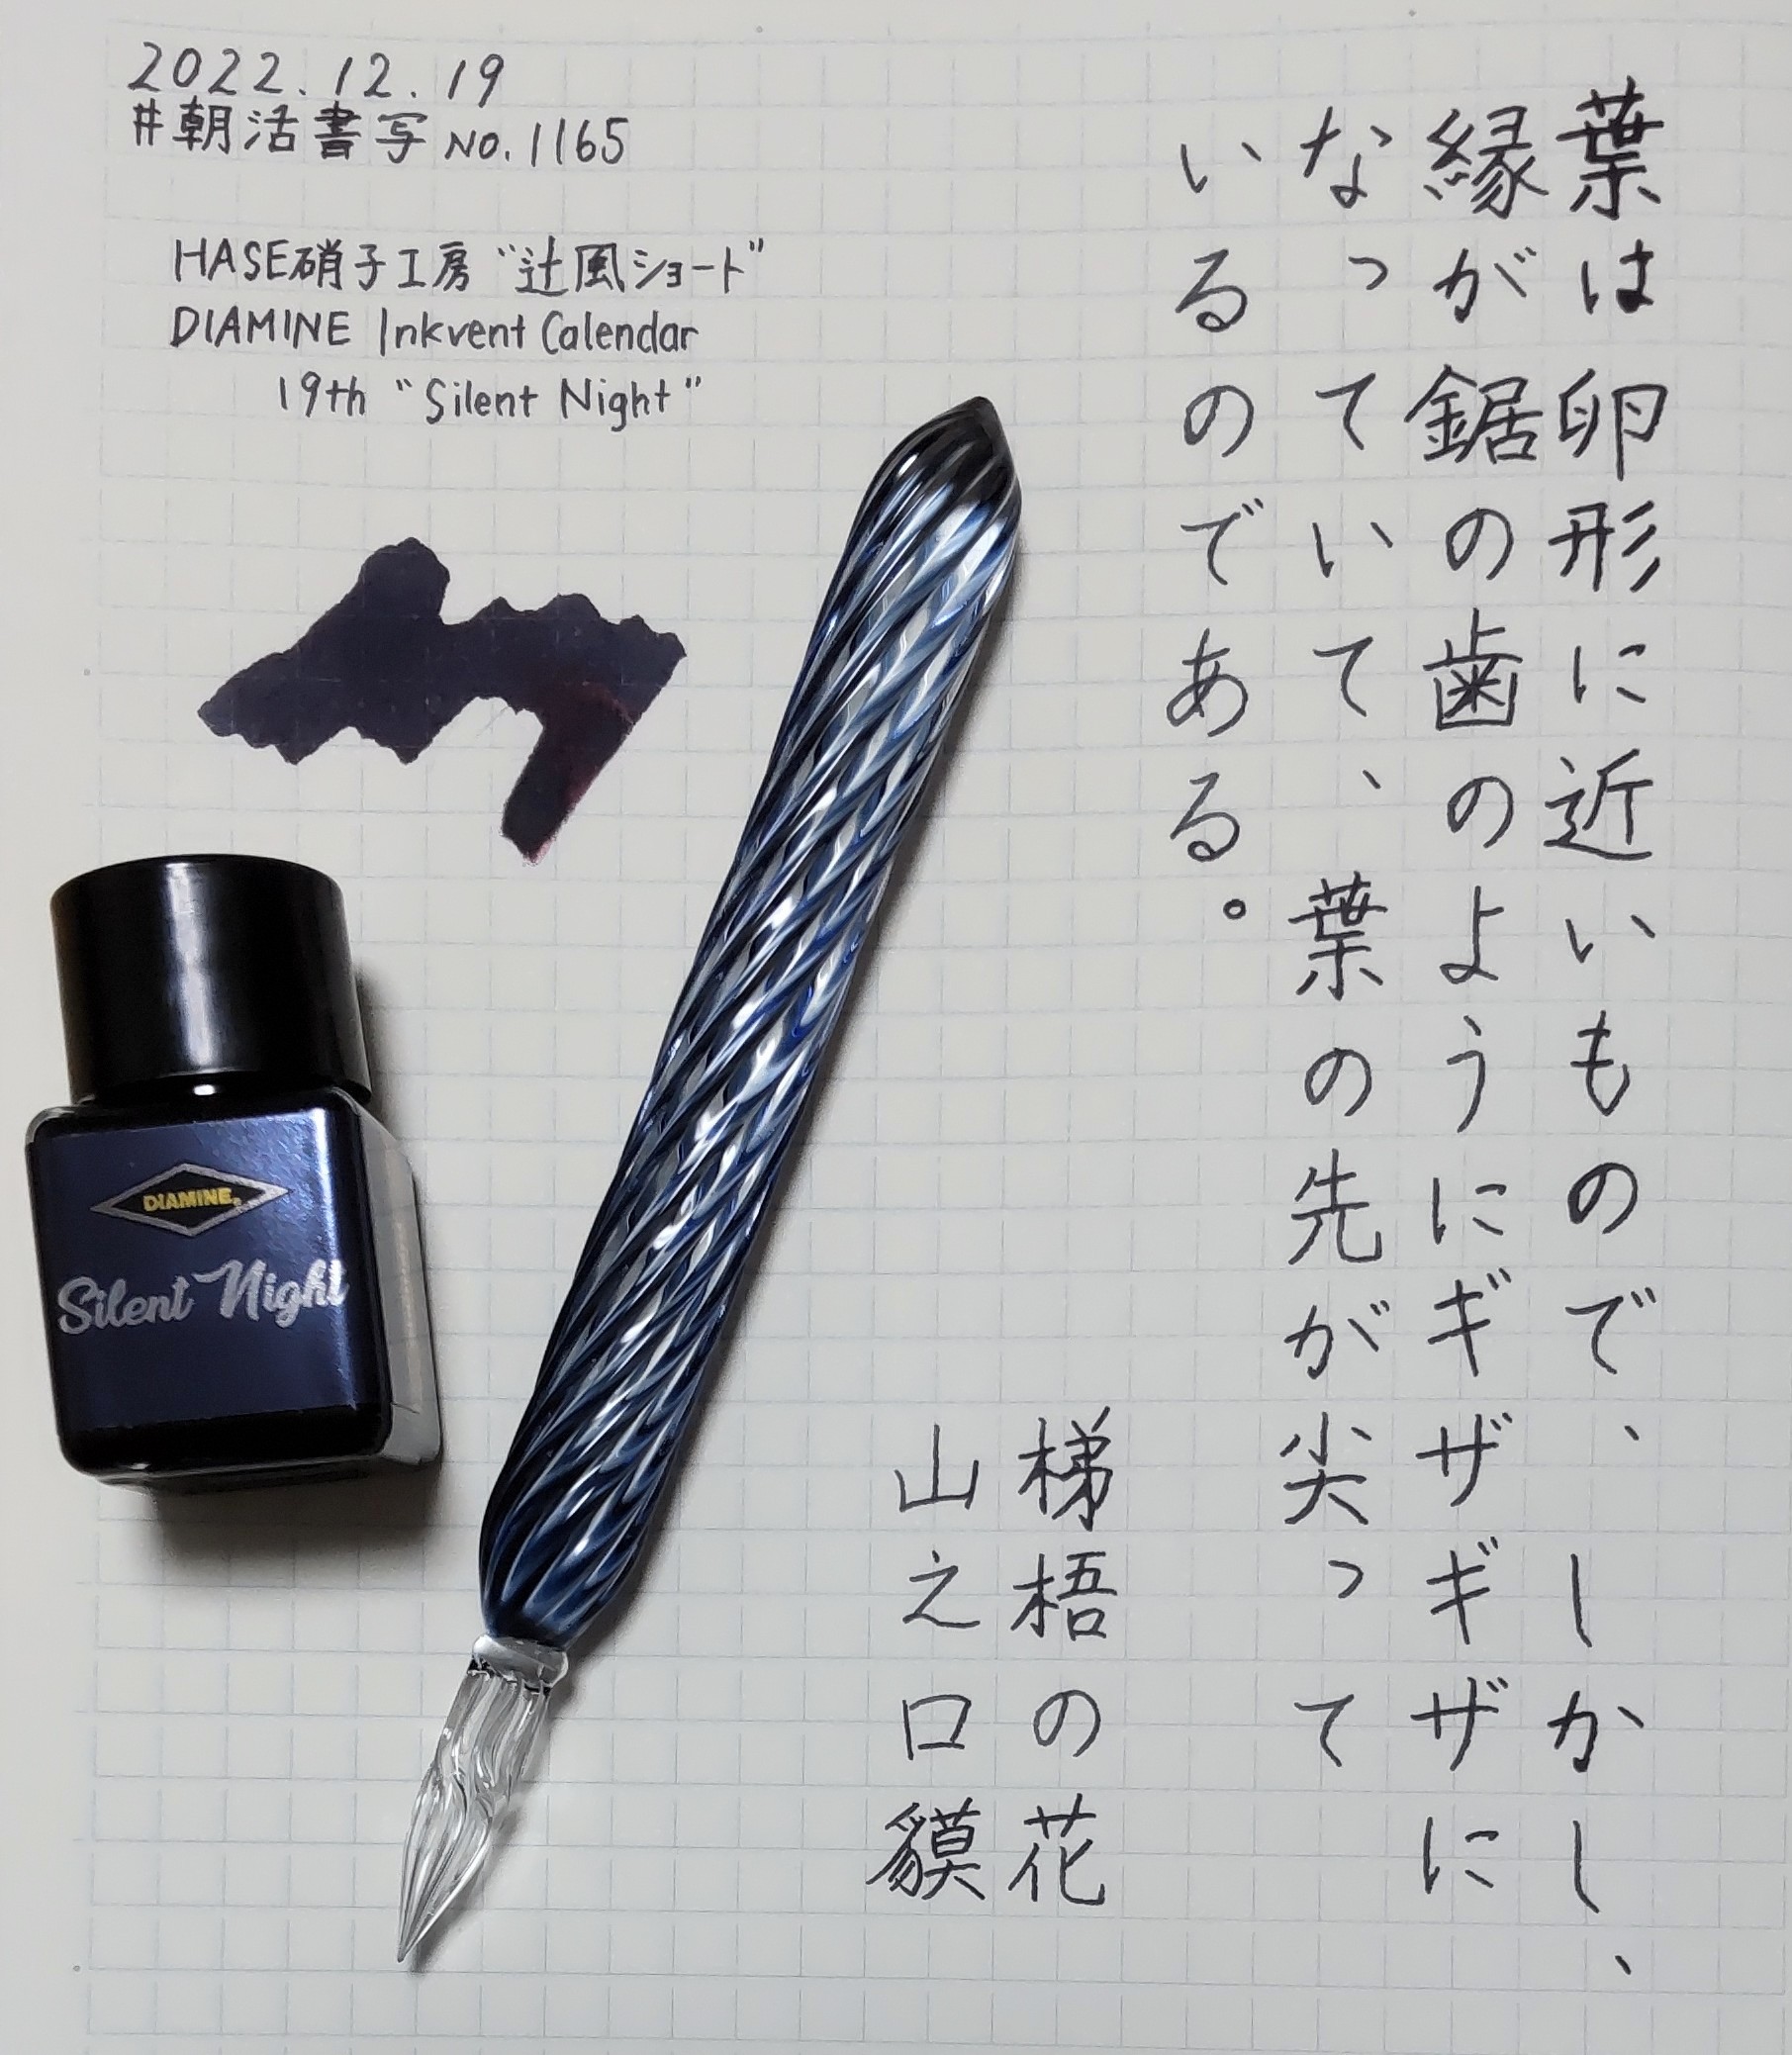 2022.12.19
#朝活書写 NO.1165
HASE硝子工房 "辻風ショート"
DIAMINE Inkvent Calendar
19th "Silent Night"
葉は卵形に近いもので、しかし、
縁が鋸の歯のようにギザギザに
なっていて、葉の先が尖って
いるのである。
梯梧の花
山之口貘
DIAMINE
Silent Night